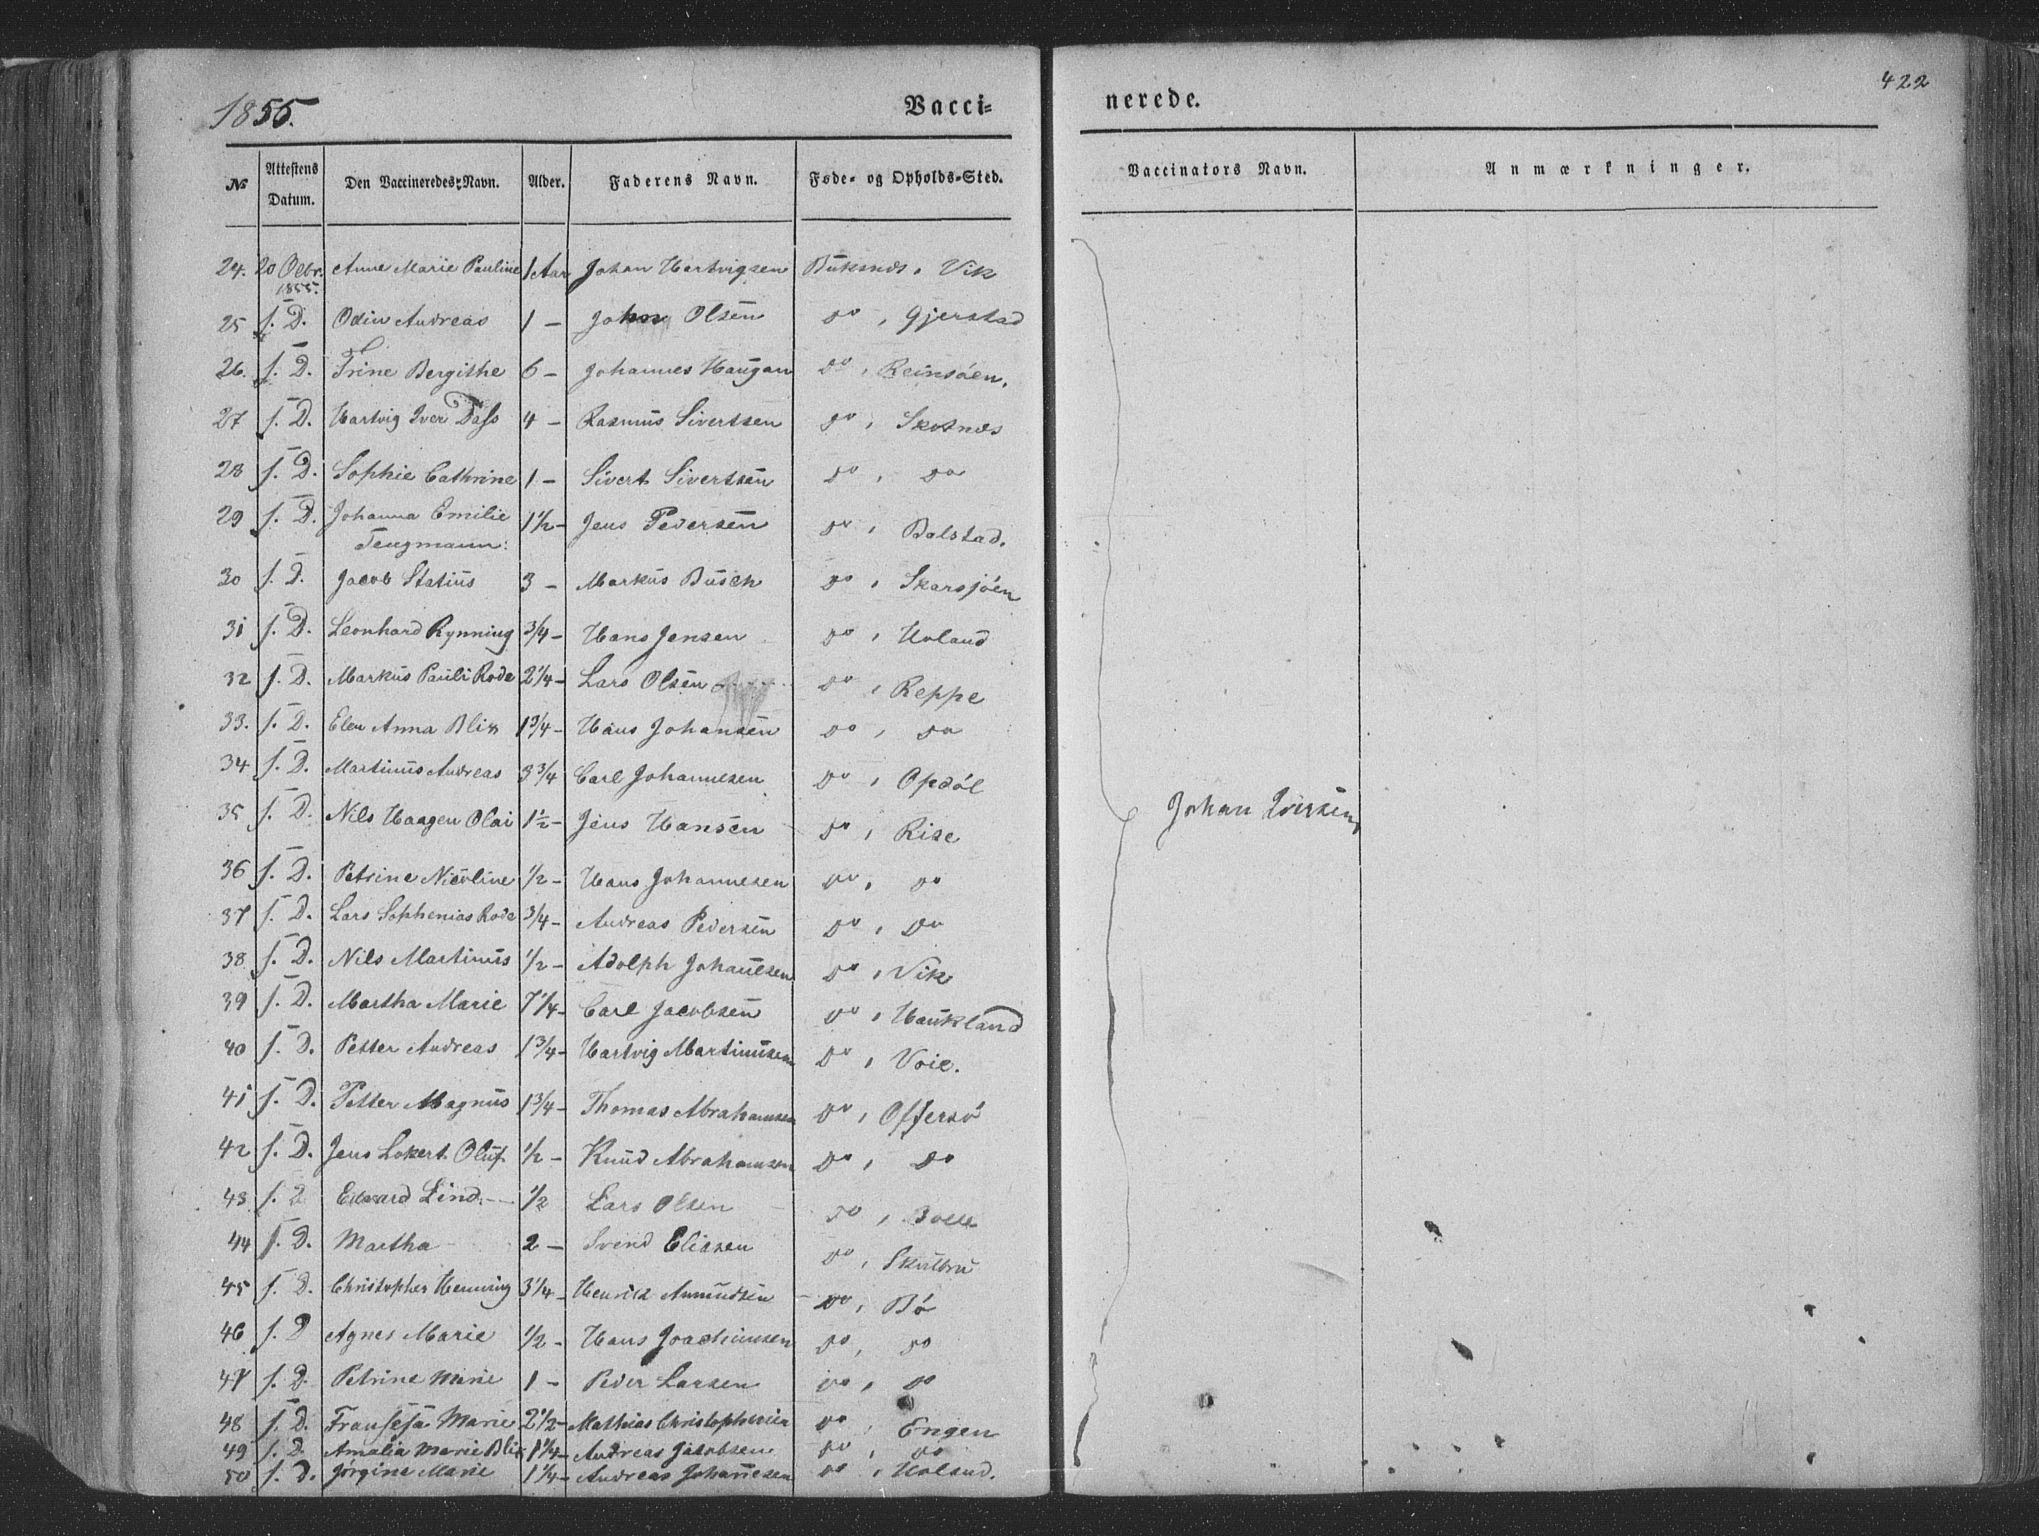 1855.
Vacci=
nerede.
422
№ Attestens Datum. Den Vaccineredes Navn. Alder. Faderens Navn. Føde- og Opholds-Sted.
Vaccinators Navn. Anmærkninger.
24. 20 Octbr. 1855. Anne Marie Pauline 1 Aar Johan Hartvigsen Buksnæs, Vik
25 s. D. Odin Andreas 1 — John Olsen do, Gjerstad
26. s. D. Trine Bergithe 6 — Johannes Haugan do, Reinsöen.
27 s. D. Hartvig Iver Dass 4 — Rasmus Sivertsen do, Skotnæs
28 s. D. Sophie Cathrine 1 — Sivert Sivertsen do, do
29 s. D. Johanna Emilie 1½ — Jens Pedersen do, Balstad.
Tengmann:
30 s. D. Jacob Statius 3 — Markus Busch do, Skarsjöen
31 s. D. Leonhard Rynning ¾ — Hans Jensen do, Uoland
32 s. D. Markus Pauli Rode 2¼ — Lars Olsen do, Reppe
33. s. D. Elen Anna Blix 1¾ — Hans Johansen do, do
34 s. D. Martinus Andreas 3¾ Carl Johannesen do, Opdöl
35 s. D. Nils Haagen Olai 1½ — Jens Hansen do, Rise
36 s. D. Petrine Nicoline ½ — Hans Johannesen do, do
37 s. D. Lars Sophenias Rode ¾ — Andreas Pedersen do, do
38 s. D. Nils Martinus ½ — Adolph Johansen do, Vik
39 s. D. Martha Marie 7¼ — Carl Jacobsen do, Haukland
40 s. D. Petter Andreas 1¾ — Hartvig Martinusen do, Voie.
41 s. D. Petter Magnus 1¾ — Thomas Abrahamsen do, Offersö
42 s. D. Jens Lokert Oluf ½ — Knud Abrahamsen do, do
43 s. D Edvard Lind ½ Lars Olsen do, Bolle
44 s. D. Martha 2 — Svend Eliasen do, Skulbru
45 s. D. Christopher Henning 3¼ — Henrik Amundsen do, Bö
46 s. D Agnes Marie ½ — Hans Joachimsen do, do
47 s. D. Petrine Marie 1 — Peder Larsen do, do
48 s. D. Fransesa Marie 2½ — Mathias Christophersen do, Engen
49 s. D. Amalia Marie Blix 1¼ — Andreas Jacobsen do, do
50 s. D. Jörgine Marie 1¼ — Andreas Johannesen do, Uoland.
Johan Iversen